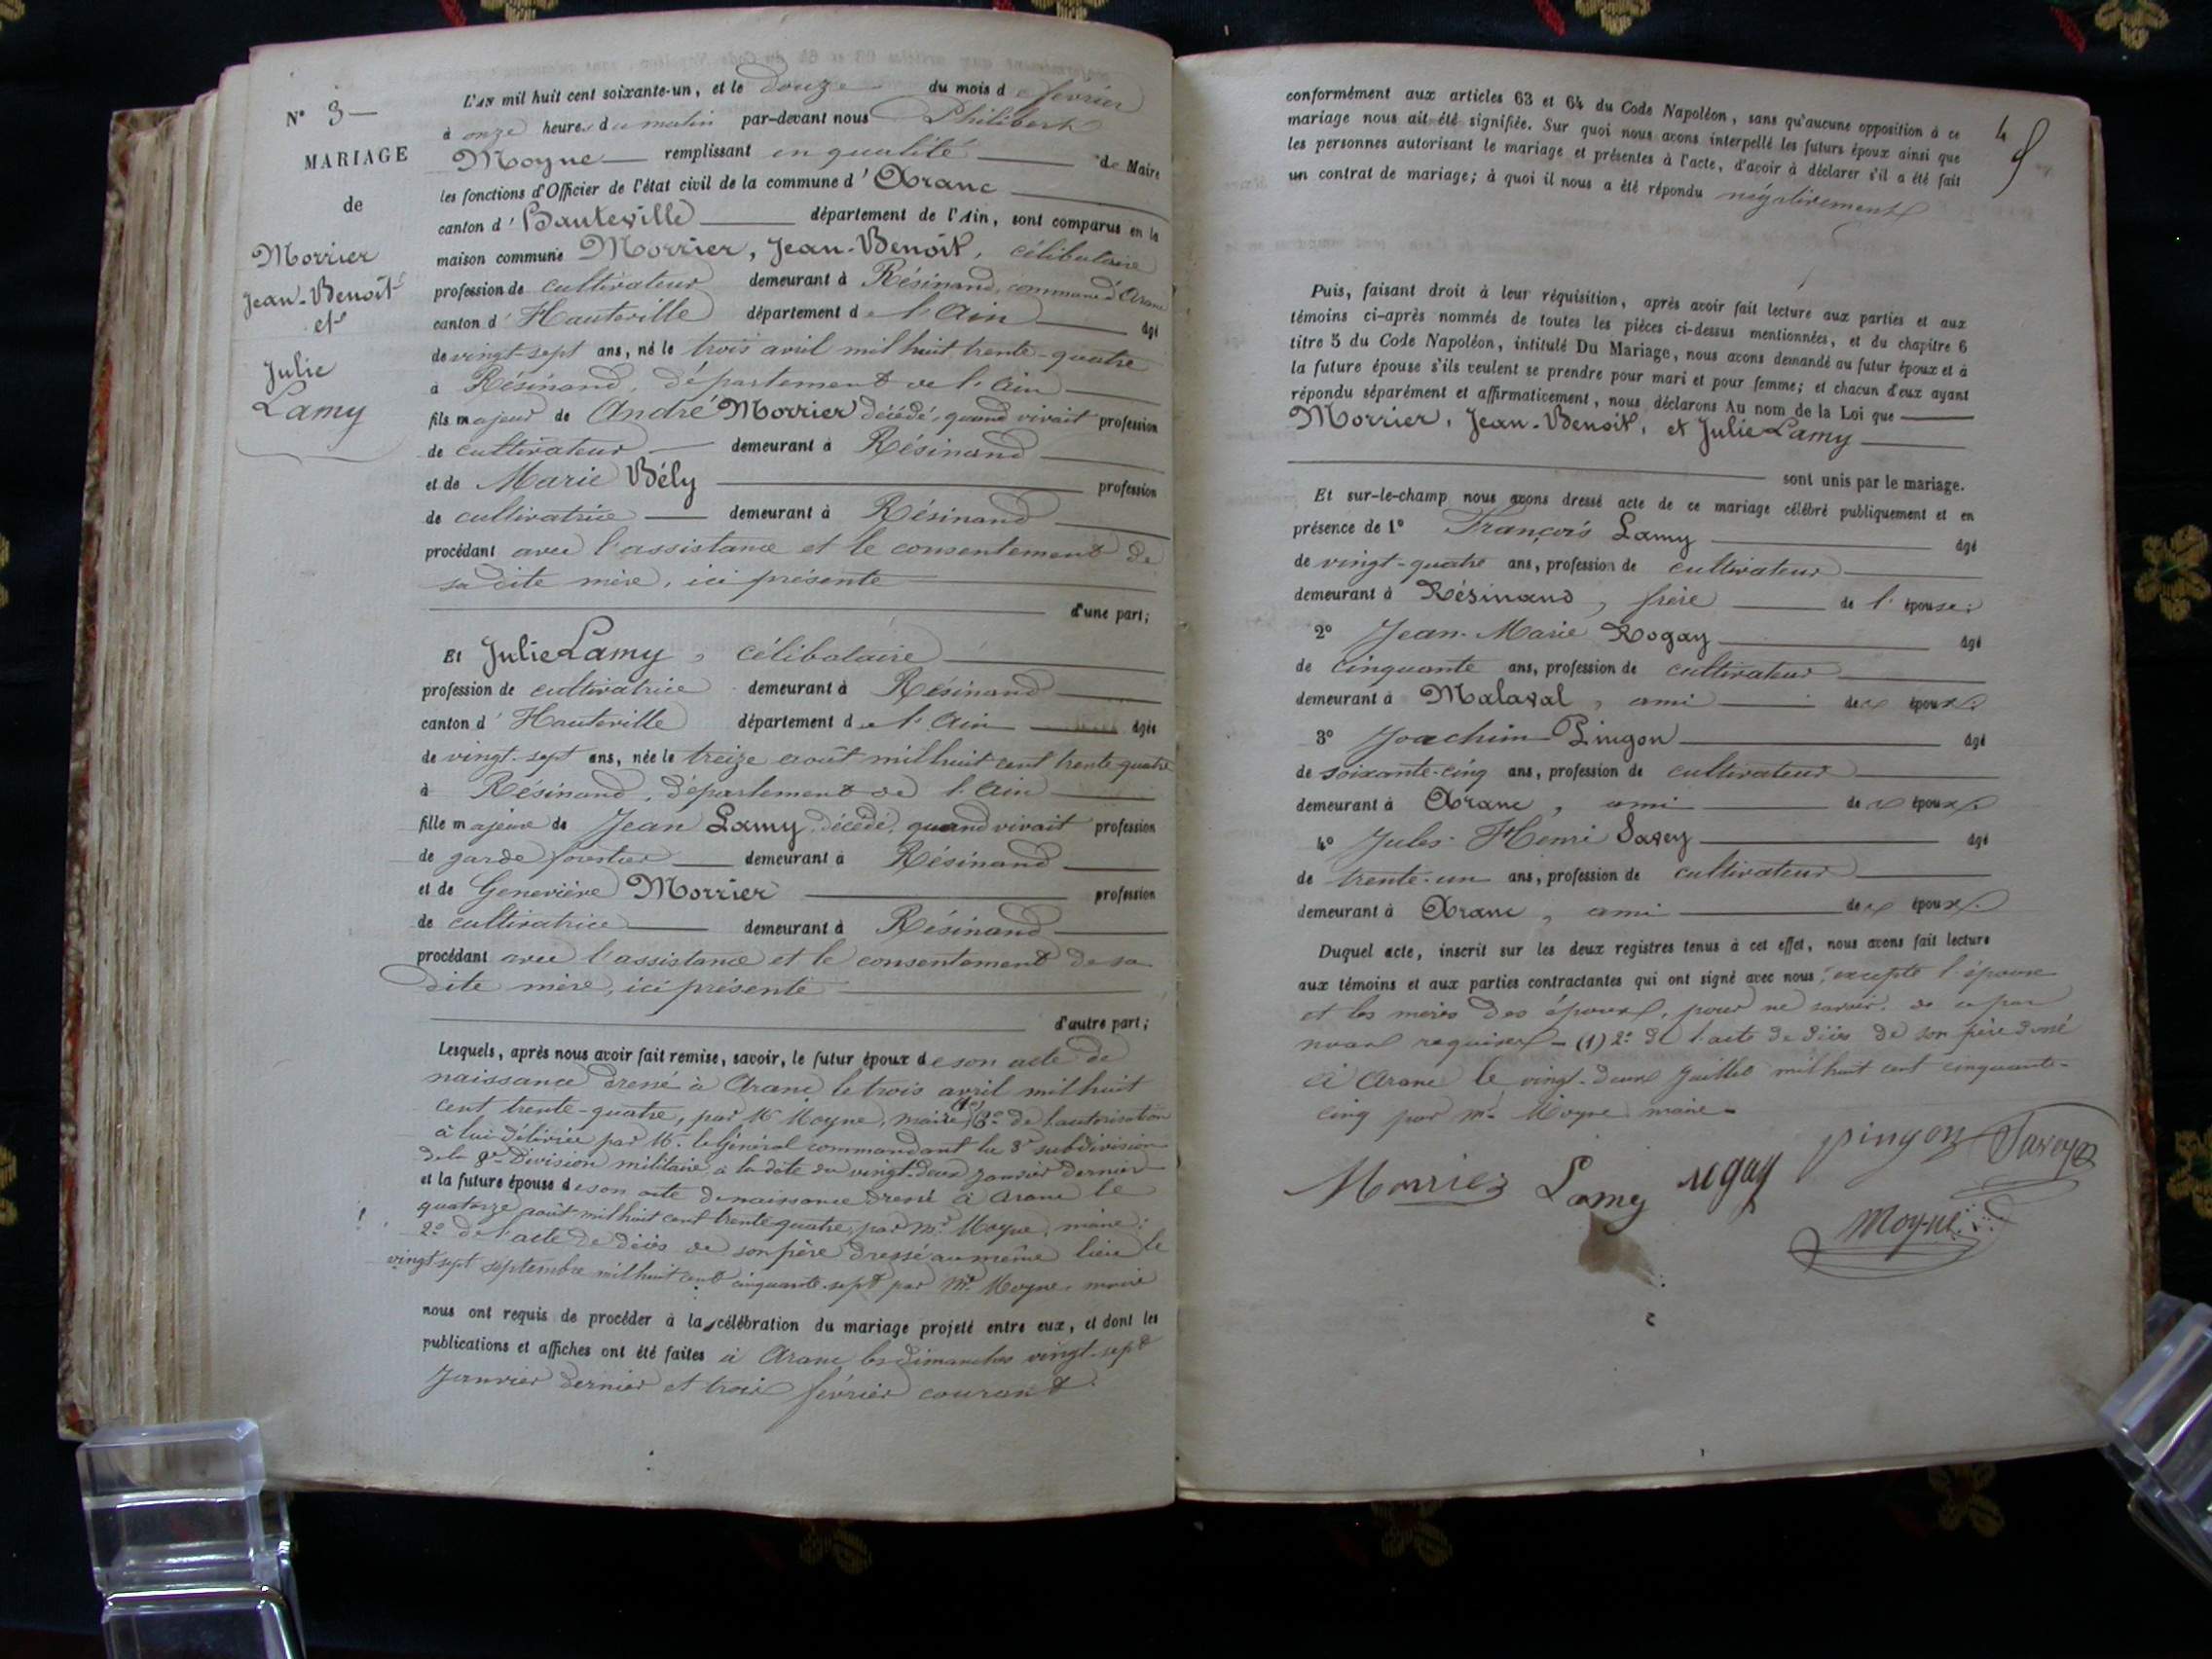 N° 3 —
MARIAGE
de
Morrier
Jean-Benoît
et
Julie
Lamy
L'AN mil huit cent soixante-un, et le douze du mois de février
à onze heures du matin par-devant nous Philibert
Moyne — remplissant en qualité — de Maire
les fonctions d'Officier de l'état civil de la commune d'Aranc —
canton d'Hauteville — département de l'Ain, sont comparus en la
maison commune Morrier, Jean-Benoît, célibataire
profession de cultivateur demeurant à Résinand, commune d'Aranc
canton d'Hauteville département de l'Ain — âgé
de vingt-sept ans, né le trois avril mil huit trente-quatre
à Résinand, département de l'Ain —
fils majeur de André Morrier décédé, quand vivait profession
de cultivateur — demeurant à Résinand —
et de Marie Bély — profession
de cultivatrice — demeurant à Résinand —
procédant avec l'assistance et le consentement de
sa dite mère, ici présente —
d'une part;
Et Julie Lamy, célibataire —
profession de cultivatrice demeurant à Résinand —
canton d'Hauteville département de l'Ain — âgée
de vingt-sept ans, née le treize août mil huit cent trente quatre
à Résinand, département de l'Ain —
fille majeure de Jean Lamy, décédé, quand vivait profession
de garde forestier — demeurant à Résinand —
et de Geneviève Morrier — profession
de cultivatrice — demeurant à Résinand —
procédant avec l'assistance et le consentement de sa
dite mère, ici présente —
d'autre part;
Lesquels, après nous avoir fait remise, savoir, le futur époux de son acte de
naissance dressé à Aranc le trois avril mil huit
cent trente-quatre, par Mr Moyne, maire (1) 3° de l'autorisation
à lui délivrée par Mr. le Général commandant la 3e subdivision
de la 8e Division militaire à la date du vingt-deux janvier dernier
et la future épouse de son acte de naissance dressé à Aranc le
quatorze août mil huit cent trente quatre, par Mr. Moyne, maire;
2° de l'acte de décès de son père dressé au même lieu le
vingt-sept septembre mil huit cent cinquante-sept par Mr. Moyne, maire
nous ont requis de procéder à la célébration du mariage projeté entre eux, et dont les
publications et affiches ont été faites à Aranc les dimanches vingt-sept
Janvier dernier et trois février courant.
4
conformément aux articles 63 et 64 du Code Napoléon, sans qu'aucune opposition à ce
mariage nous ait été signifiée. Sur quoi nous avons interpellé les futurs époux ainsi que
les personnes autorisant le mariage et présentes à l'acte, d'avoir à déclarer s'il a été fait
un contrat de mariage; à quoi il nous a été répondu négativement
Puis, faisant droit à leur réquisition, après avoir fait lecture aux parties et aux
témoins ci-après nommés de toutes les pièces ci-dessus mentionnées, et du chapitre 6
titre 5 du Code Napoléon, intitulé Du Mariage, nous avons demandé au futur époux et à
la future épouse s'ils veulent se prendre pour mari et pour femme; et chacun d'eux ayant
répondu séparément et affirmativement, nous déclarons Au nom de la Loi que —
Morrier, Jean-Benoît, et Julie Lamy —
— sont unis par le mariage.
Et sur-le-champ nous avons dressé acte de ce mariage célébré publiquement et en
présence de 1° François Lamy — âgé
de vingt-quatre ans, profession de cultivateur —
demeurant à Résinand, frère — de l'épouse;
2° Jean-Marie Rogay — âgé
de cinquante ans, profession de cultivateur —
demeurant à Malaval, ami — des époux;
3° Joachim Pingon — âgé
de soixante-cinq ans, profession de cultivateur —
demeurant à Aranc, ami — des époux;
4° Jules-Henri Savey — âgé
de trente-un ans, profession de cultivateur —
demeurant à Aranc, ami — des époux.
Duquel acte, inscrit sur les deux registres tenus à cet effet, nous avons fait lecture
aux témoins et aux parties contractantes qui ont signé avec nous, excepté l'épouse
et les mères des époux, pour ne savoir, de ce par
nous requises — (1) 2° de l'acte de décès de son père dressé
à Aranc le vingt-deux Juillet mil huit cent cinquante-
cinq par Mr. Moyne maire —
Morrier Lamy rogay pingon Savey
Moyne